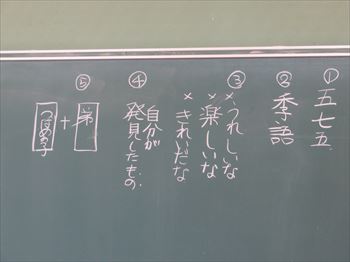 ① 五七五
② 季語
③ ×うれしいな
×楽しいな
×きれいだな
④ 自分が
発見したもの.
⑤ 弟
+
つばめの子